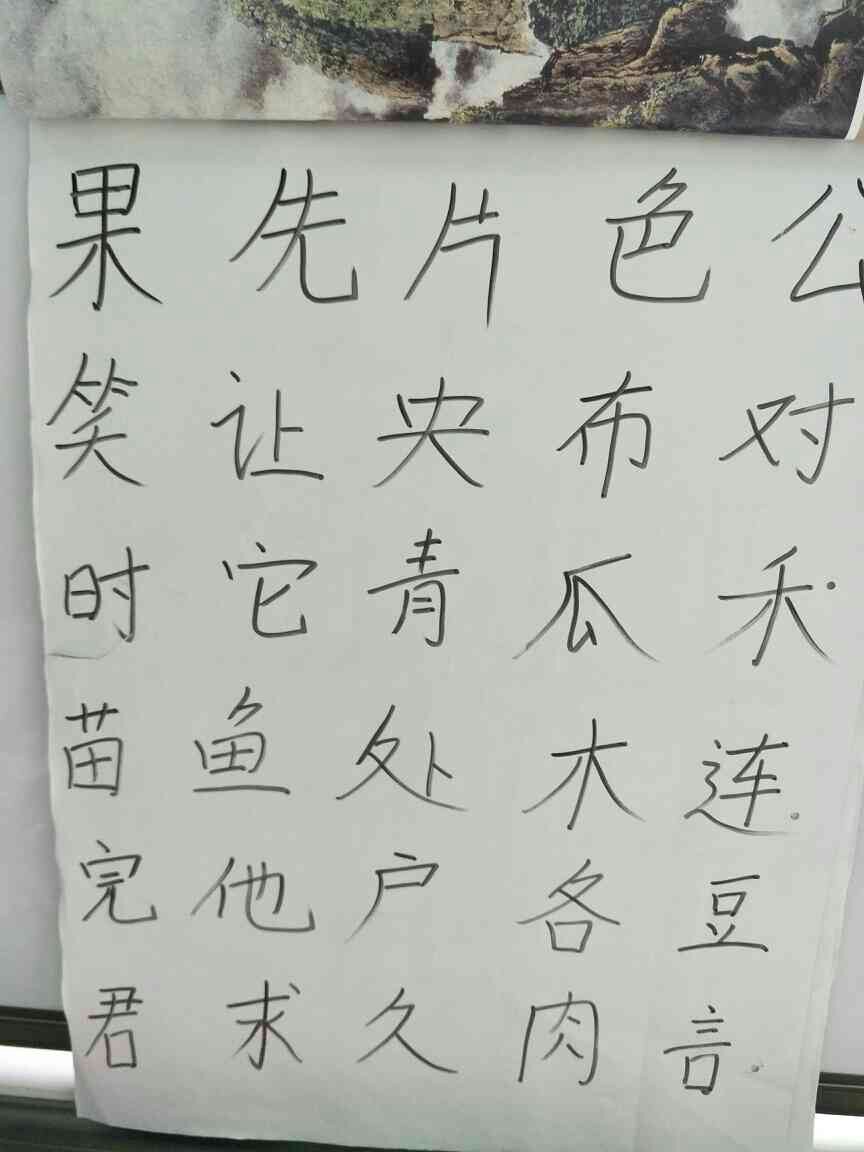 果 先 片 色 公
笑 让 央 布 对
时 它 青 瓜 禾
苗 鱼 处 木 连
完 他 户 各 豆
君 求 久 肉 言